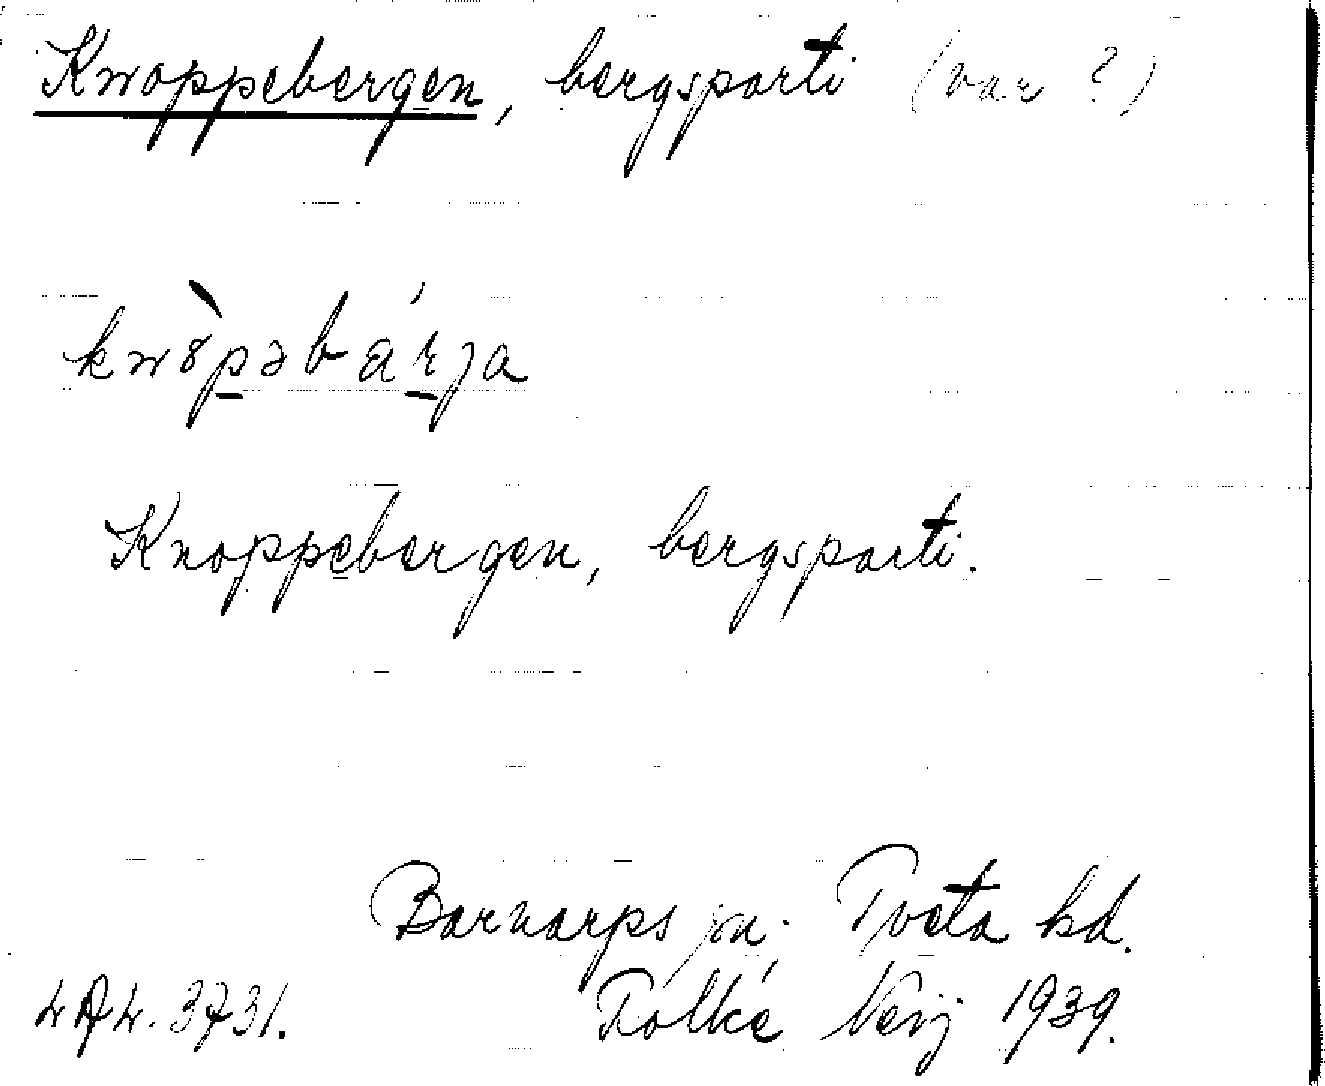 Knoppebergen, bergsparti (var ?)
knɤ̀pəbárja
Knoppebergen, bergsparti.
Barnarps sn. Tveta hd.
LAL. 3731. Folke Verj 1939.